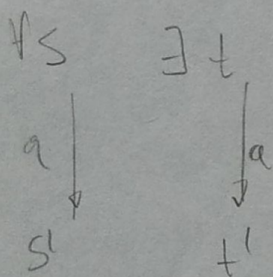 ∀s ∃t
a a
s' t'